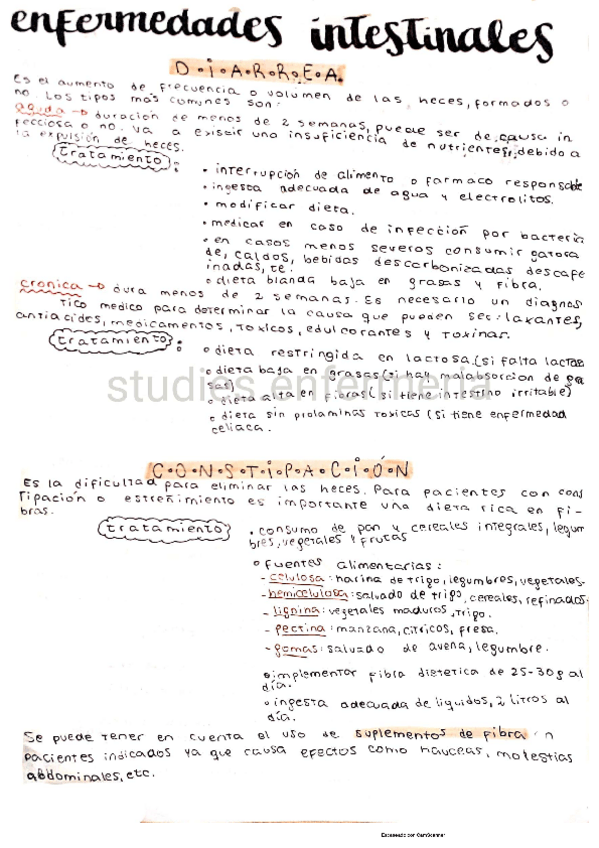 enfermedades intestinales
D·i·A·R·R·E·A
Es el aumento de frecuencia o volumen de las heces, formados o
no. Los tipos más comunes son:
aguda → duración de menos de 2 semanas, puede ser de causa in
fecciosa o no. va a existir una insuficiencia de nutrientes, debido a
la expulsión de heces.
tratamiento:
• interrupción de alimento o farmaco responsable
• ingesta adecuada de agua y electrolitos.
• modificar dieta.
• medicar en caso de infección por bacteria
• en casos menos severos consumir gatora
de, caldos, bebidas descarbonizadas descafe
inadas, te.
• dieta blanda baja en grasas y fibra.
cronica → dura menos de 2 semanas. Es necesario un diagnos
tico medico para determinar la causa que pueden ser: laxantes,
antiacides, medicamentos, toxicos, edulcorantes y toxinas.
tratamiento:
• dieta restringida en lactosa (si falta lactas
• dieta baja en grasas (si hay malabsorcion de gra
sas)
studies.enfermeria
• dieta alta en fibras (si tiene intestino irritable)
• dieta sin prolaminas toxicas (si tiene enfermedad
celiaca.
C·O·N·S·T·i·P·A·C·i·Ó·N
Es la dificultad para eliminar las heces. Para pacientes con cons
tipación o estreñimiento es importante una dieta rica en fi-
bras.
tratamiento
• consumo de pan y cereales integrales, legum
bres, vegetales y frutas
• fuentes alimentarias:
- celulosa: harina de trigo, legumbres, vegetales.
- hemicelulosa: salvado de trigo, cereales, refinados
- lignina: vegetales maduros, trigo.
- pectina: manzana, citricos, fresa.
- gomas: salvado de avena, legumbre.
• implementar fibra dietetica de 25-30g al
día.
• ingesta adecuada de liquidos, 2 litros al
día.
Se puede tener en cuenta el uso de suplementos de fibra n
pacientes indicados ya que causa efectos como nauceas, molestias
abdominales, etc.
Escaneado con CamScanner